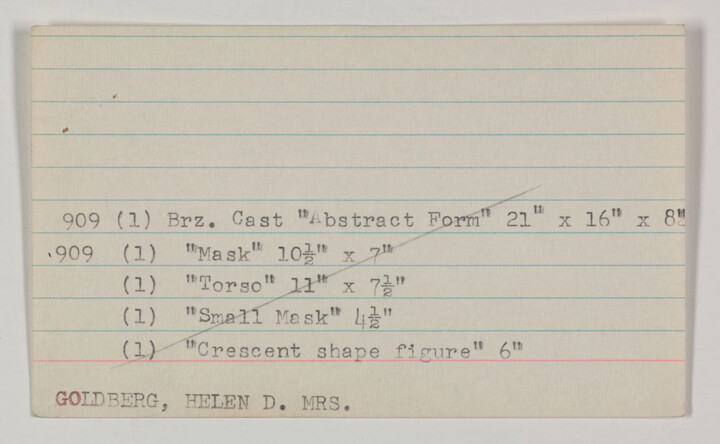 909 (1) Brz. Cast "Abstract Form" 21" x 16" x 8"
909 (1) "Mask" 10½" x 7"
(1) "Torso" 11" x 7½"
(1) "Small Mask" 4½"
(1) "Crescent shape figure" 6"
GOLDBERG, HELEN D. MRS.